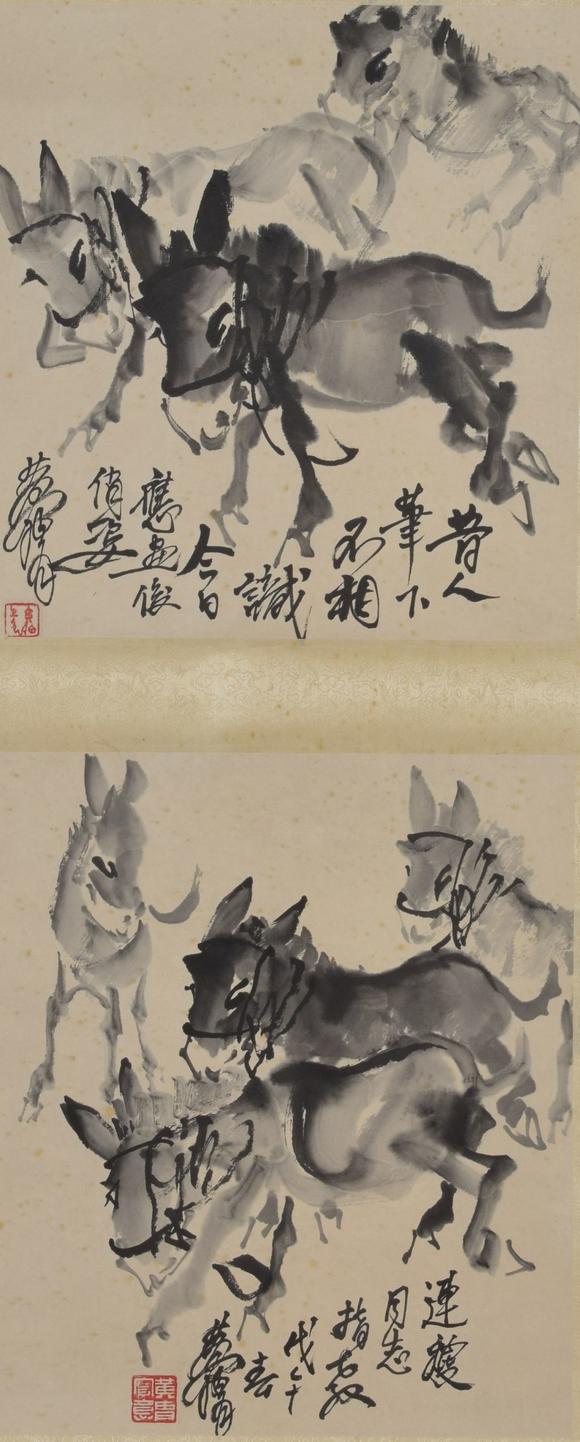 昔人
筆下
不相
識
今日
應畫俊
俏姿
黃胄
連
同志
指教
戊午
春
黃胄
黃胄
寫意